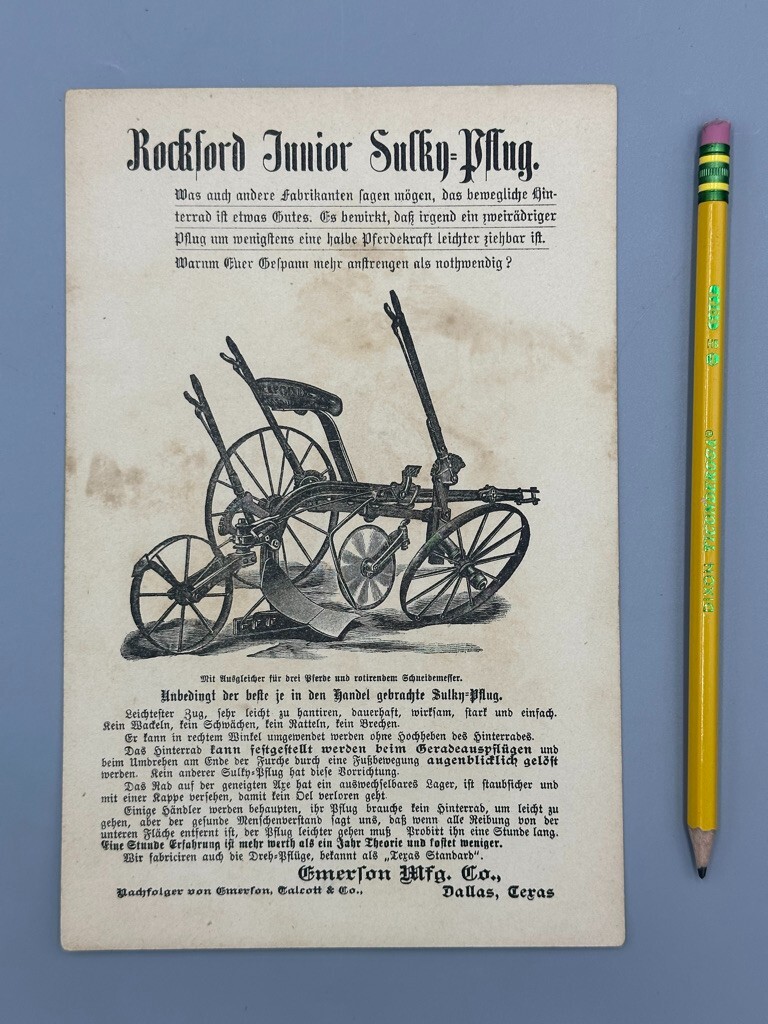 Rockford Junior Sulky=Pflug.
Was auch andere Fabrikanten sagen mögen, das bewegliche Hin-
terrad ist etwas Gutes. Es bewirkt, daß irgend ein zweirädriger
Pflug um wenigstens eine halbe Pferdekraft leichter ziehbar ist.
Warum Euer Gespann mehr anstrengen als nothwendig?
Mit Ausgleicher für drei Pferde und rotirendem Schneidemesser.
Unbedingt der beste je in den Handel gebrachte Sulky=Pflug.
Leichtester Zug, sehr leicht zu hantiren, dauerhaft, wirksam, stark und einfach.
Kein Wackeln, kein Schwächen, kein Ratteln, kein Brechen.
Er kann in rechtem Winkel umgewendet werden ohne Hochheben des Hinterrades.
Das Hinterrad kann festgestellt werden beim Geradeauspflügen und
beim Umdrehen am Ende der Furche durch eine Fußbewegung augenblicklich gelöst
werden. Kein anderer Sulky=Pflug hat diese Vorrichtung.
Das Rad auf der geneigten Axe hat ein auswechselbares Lager, ist staubsicher und
mit einer Kappe versehen, damit kein Oel verloren geht
Einige Händler werden behaupten, ihr Pflug brauche kein Hinterrad, um leicht zu
gehen, aber der gesunde Menschenverstand sagt uns, daß wenn alle Reibung von der
unteren Fläche entfernt ist, der Pflug leichter gehen muß Probirt ihn eine Stunde lang.
Eine Stunde Erfahrung ist mehr werth als ein Jahr Theorie und kostet weniger.
Wir fabriciren auch die Dreh=Pflüge, bekannt als „Texas Standard“.
Emerson Mfg. Co.,
Nachfolger von Emerson, Talcott & Co., Dallas, Texas